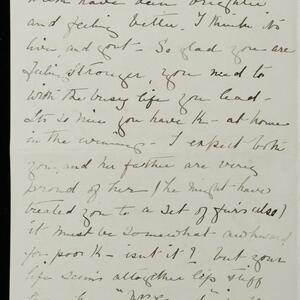 have been brighter
and feeling better. I think No
live and gout - So glad you are
feeling stronger, you need to
with the busy life you lead -
Its so nice you have K - at home
in the evenings - I expect both
you, and her father are very
proud of her, (he might have
treated you to a set of furs also)
it must be somewhat awkward
for poor K - isnt it? but your
life seems altogether